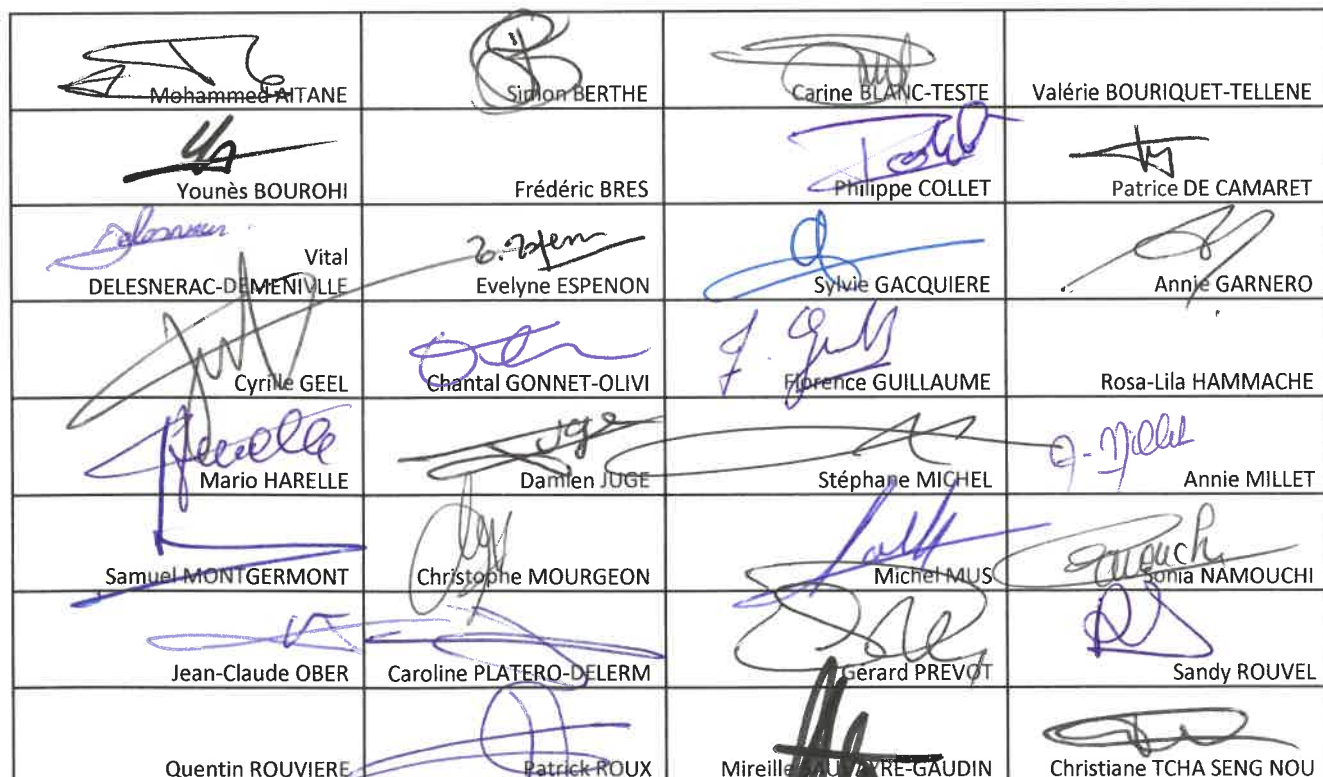 Mohammed AITANE
Simon BERTHE
Carine BLANC-TESTE
Valérie BOURIQUET-TELLENE
Younès BOUROHI
Frédéric BRES
Philippe COLLET
Patrice DE CAMARET
Vital
DELESNERAC-DEMENIVLLE
Evelyne ESPENON
Sylvie GACQUIERE
Annie GARNERO
Cyrille GEEL
Chantal GONNET-OLIVI
Florence GUILLAUME
Rosa-Lila HAMMACHE
Mario HARELLE
Damien JUGE
Stéphane MICHEL
Annie MILLET
Samuel MONTGERMONT
Christophe MOURGEON
Michel MUS
Sonia NAMOUCHI
Jean-Claude OBER
Caroline PLATERO-DELERM
Gérard PREVOT
Sandy ROUVEL
Quentin ROUVIERE
Patrick ROUX
Mireille
Christiane TCHA SENG NOU